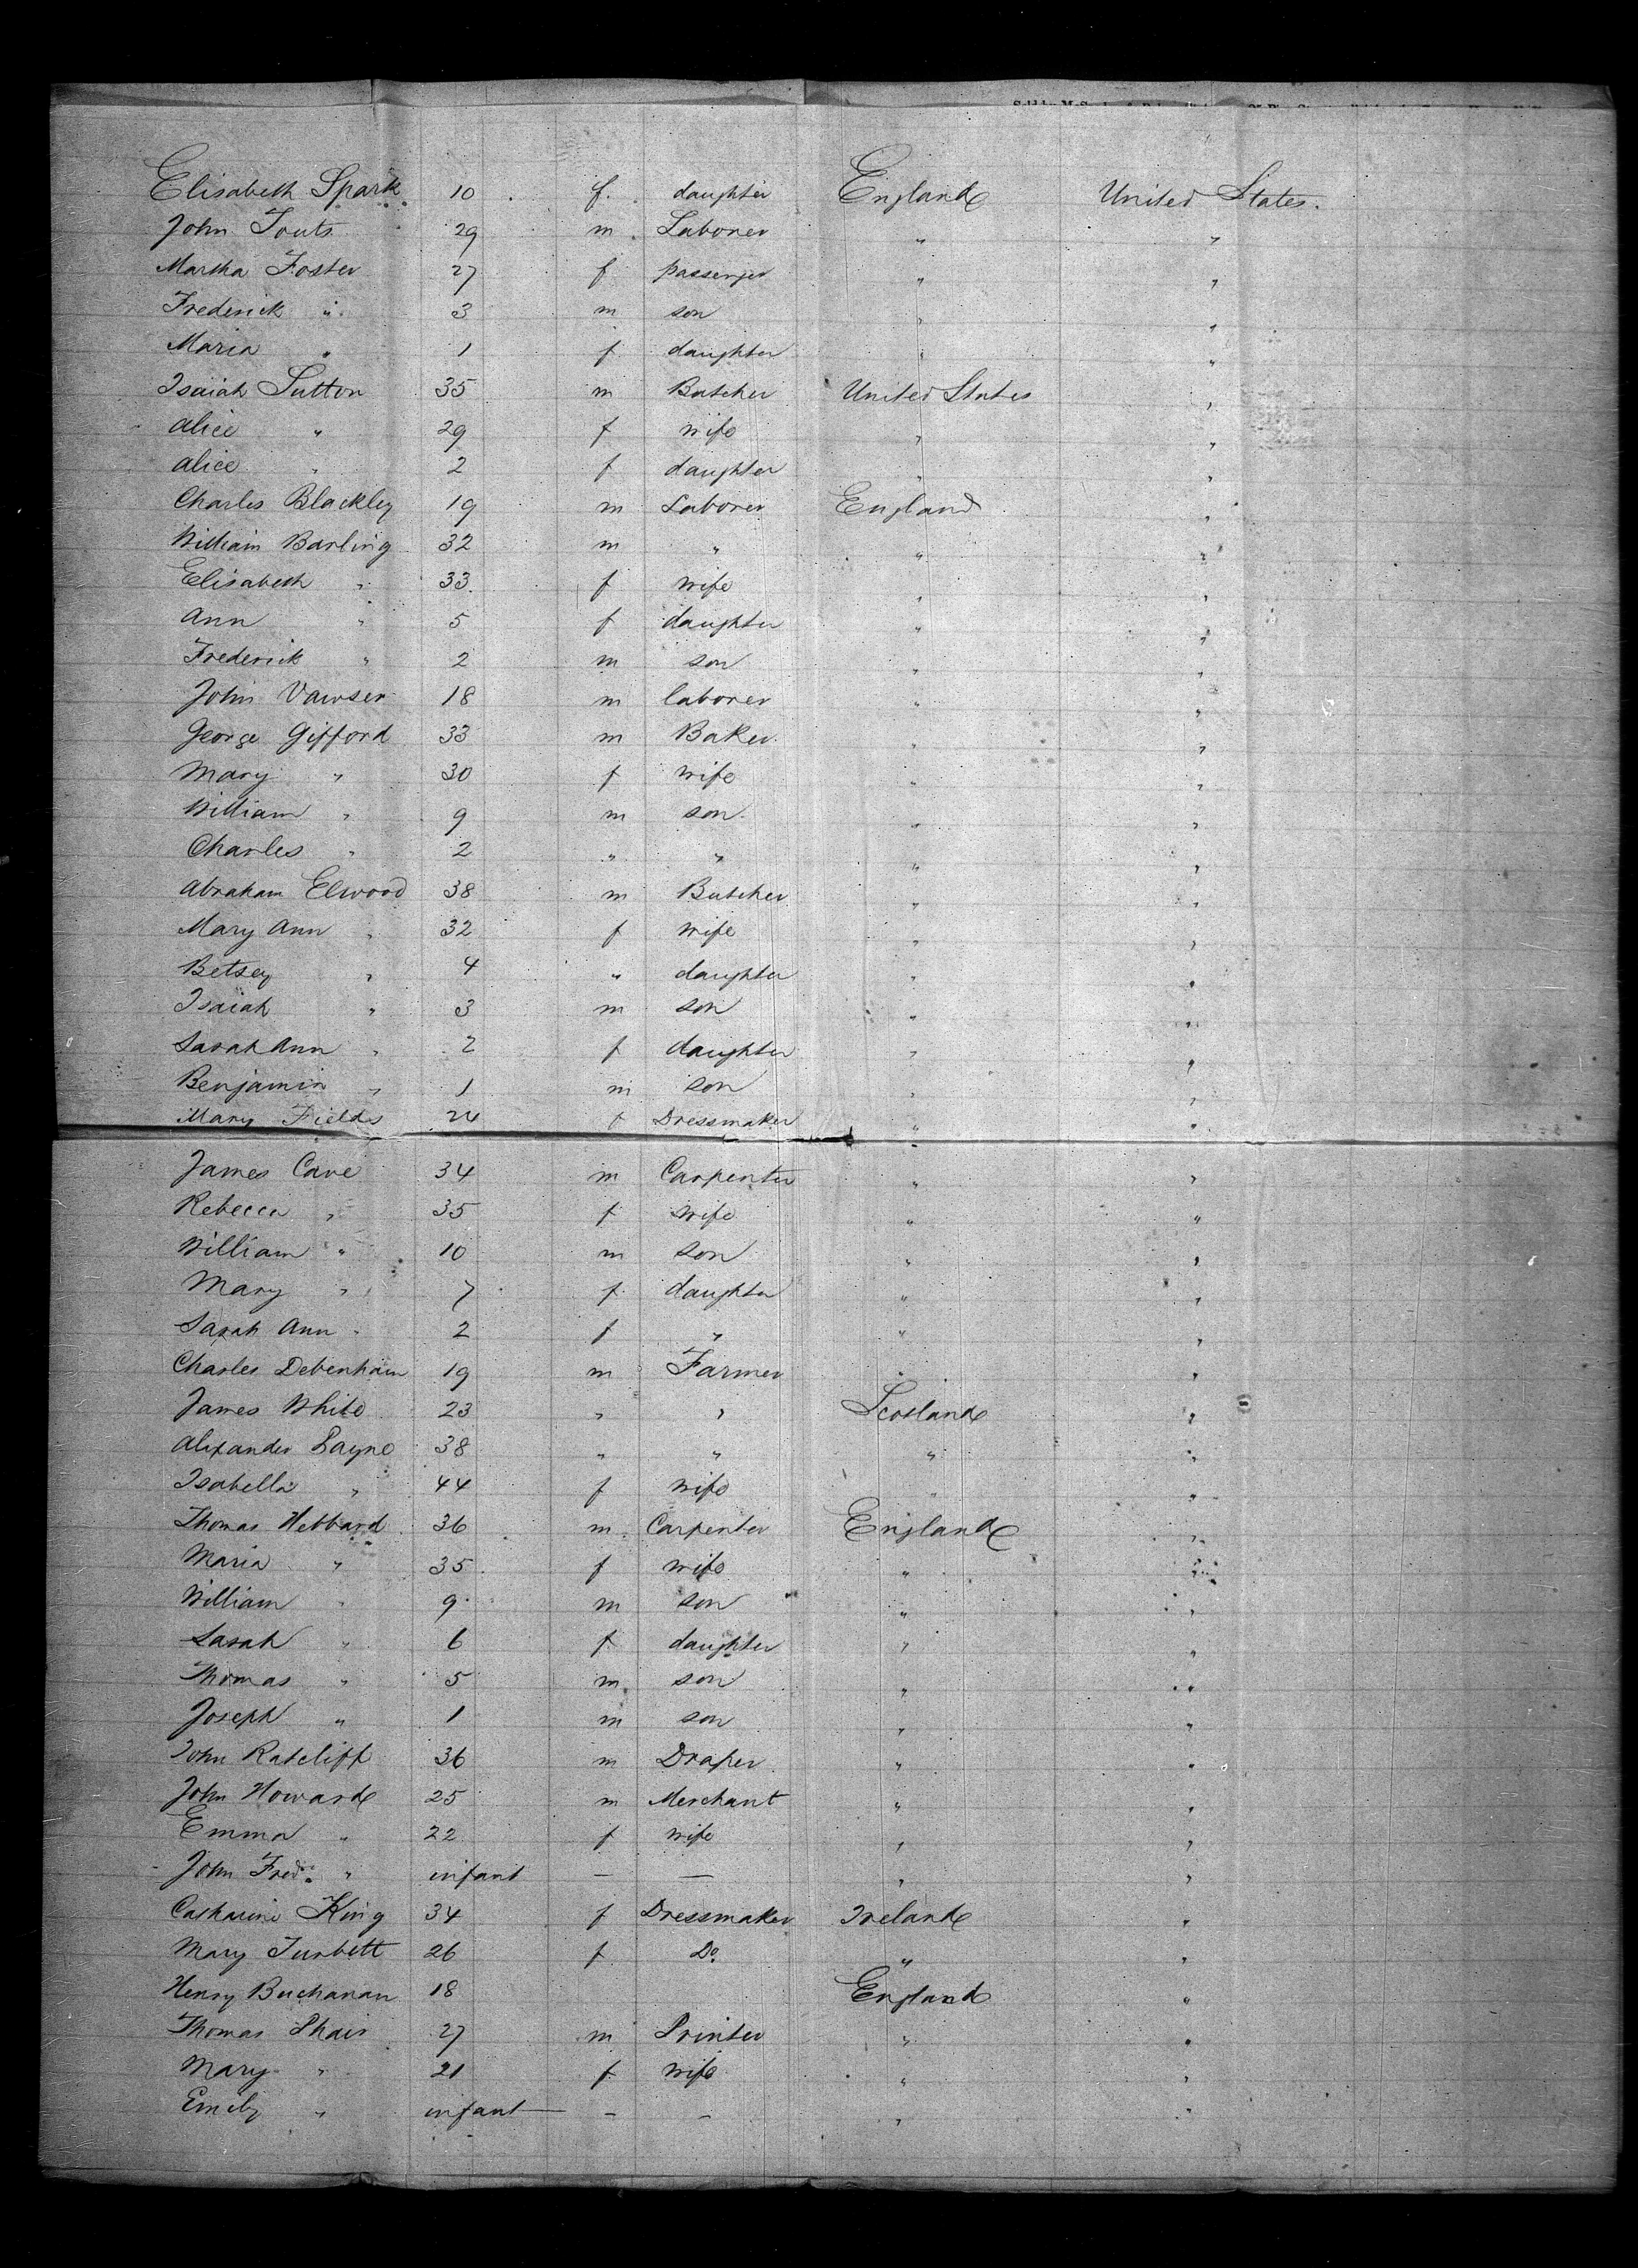 Elisabeth Spark 10 f. daughter England United States.
John Touts 29 m Laborer " "
Martha Foster 27 f passenger " "
Frederick " 3 m son " "
Maria " 1 f daughter " "
Isaiah Sutton 35 m Butcher United States "
Alice " 29 f wife " "
Alice " 2 f daughter " "
Charles Blackley 19 m Laborer England "
William Barling 32 m " " "
Elisabeth " 33 f wife " "
Ann " 5 f daughter " "
Frederick " 2 m son " "
John Vawser 18 m laborer " "
George Gifford 33 m Baker " "
Mary " 30 f wife " "
William " 9 m son " "
Charles " 2 " " " "
Abraham Elwood 38 m Butcher " "
Mary Ann " 32 f wife " "
Betsey " 4 " daughter " "
Isaiah " 3 m son " "
Sarah Ann " 2 f daughter " "
Benjamin " 1 m son " "
Mary Fields 24 f Dressmaker " "
James Cave 34 m Carpenter " "
Rebecca " 35 f wife " "
William " 10 m son " "
Mary " 7 f daughter " "
Sarah Ann " 2 f " " "
Charles Debenham 19 m Farmer " "
James White 23 " " Scotland "
Alexander Payne 38 " " " "
Isabella " 44 f wife " "
Thomas Hebbard 36 m Carpenter England "
Maria " 35 f wife " "
William " 9 m son " "
Sarah " 6 f daughter " "
Thomas " 5 m son " "
Joseph " 1 m son " "
John Ratcliff 36 m Draper " "
John Howard 25 m Merchant " "
Emma " 22 f wife " "
John Fred. " infant — — " "
Catharine King 34 f Dressmaker Ireland "
Mary Turbett 26 f Do. " "
Henry Buchanan 18 England "
Thomas Phair 27 m Printer " "
Mary " 21 f wife " "
Emily " infant — — — " "